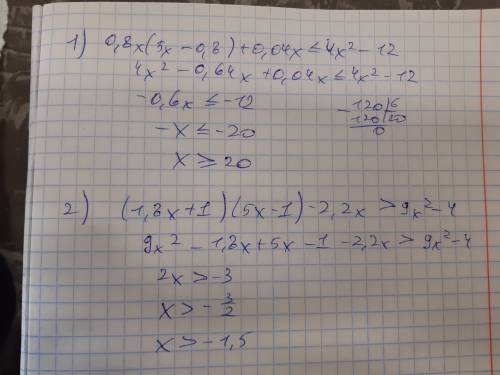 1) 0,8x(5x-0,8)+0,04x≤4x²-12
4x²-0,64x+0,04x≤4x²-12
-0,6x≤-12
-120|6
120|20
0
-x≤-20
x≥20
2) (1,8x+1)(5x-1)-2,2x>9x²-4
9x²-1,8x+5x-1-2,2x>9x²-4
2x>-3
x>-3/2
x>-1,5